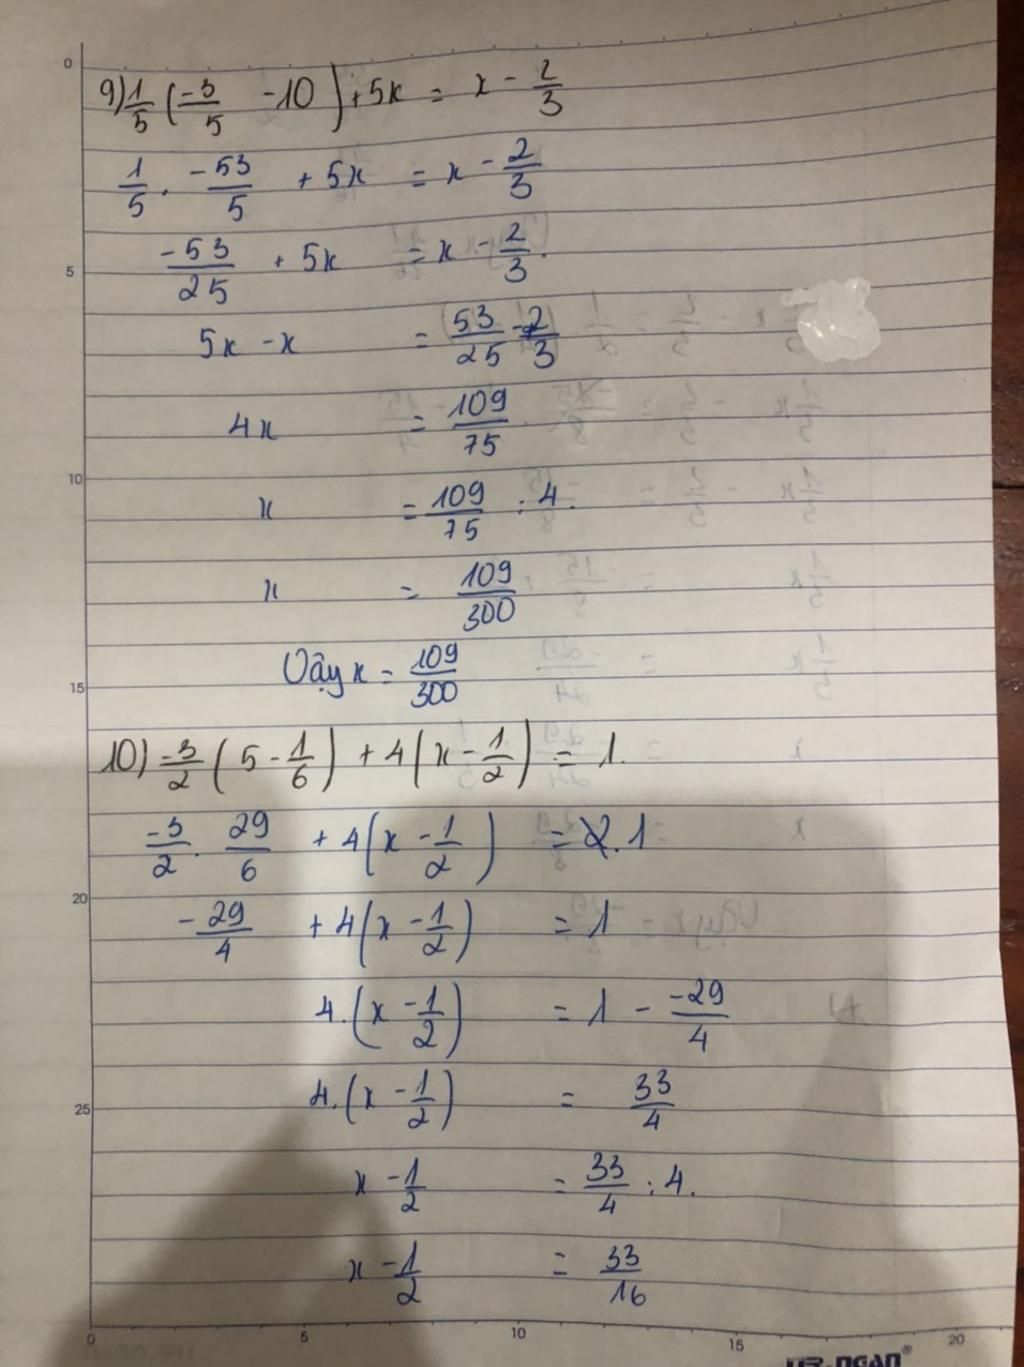 9) 1/5 (-3/5 - 10) + 5x = x - 2/3
1/5 . -53/5 + 5x = x - 2/3
-53/25 + 5x = x - 2/3.
5x - x = 53/25 - 2/3
4x = 109/75
x = 109/75 : 4.
x = 109/300
Vậy x = 109/300
10) -3/2 (5 - 1/6) + 4(x - 1/2) = 1.
-3/2 . 29/6 + 4(x - 1/2) = 1
-29/4 + 4(x - 1/2) = 1
4.(x - 1/2) = 1 - -29/4
4.(x - 1/2) = 33/4
x - 1/2 = 33/4 : 4.
x - 1/2 = 33/16
0
5
10
15
20
25
0 5 10 15 20